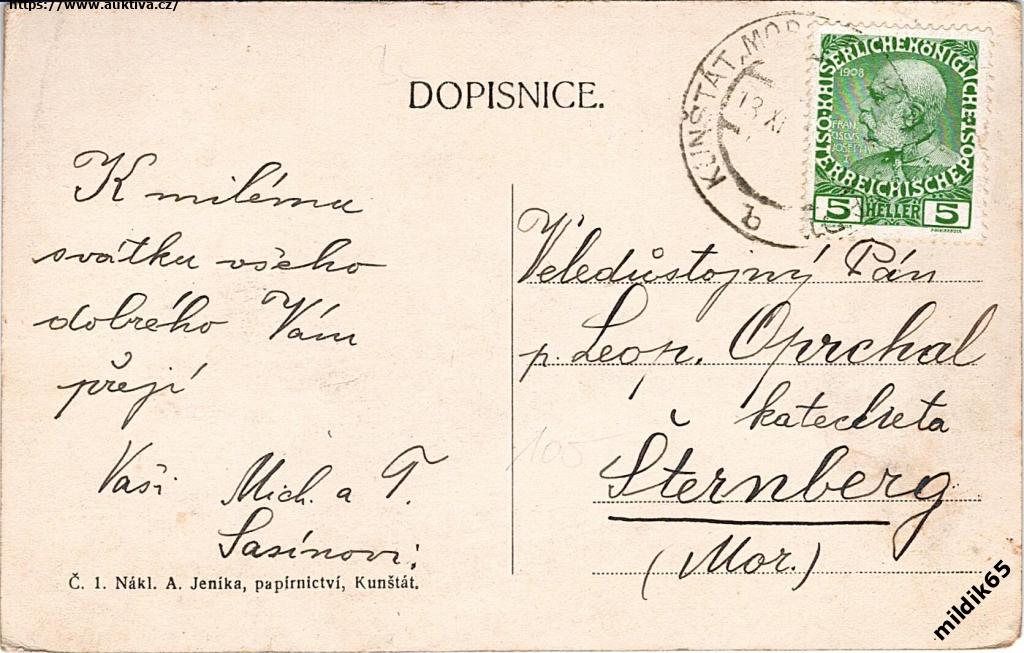 https://www.auktiva.cz/
DOPISNICE.
K milému
svátku všeho
dobrého Vám
přejí
Vaši Mich. a T.
Sasínovi.
Č. 1. Nákl. A. Jeníka, papírnictví, Kunštát.
KUNŠTÁT
13 XI
KAISERLICHE KÖNIGLICHE
ÖSTERREICHISCHE POST
1908
FRAN
CISCUS
JOSEPHUS
I
5 HELLER 5
Veledůstojný Pán
p. Leop. Oprchal
katecheta
Šternberg
(Mor.)
100
mildik65